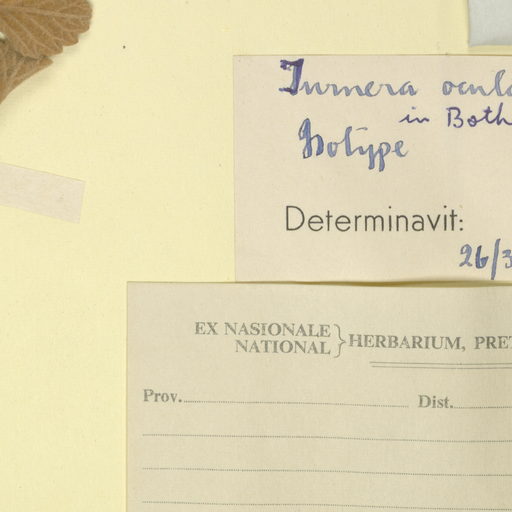 Turnera ocula
in Both
Isotype
Determinavit:
26/3
EX NASIONALE
NATIONAL } HERBARIUM, PRET
Prov. Dist.